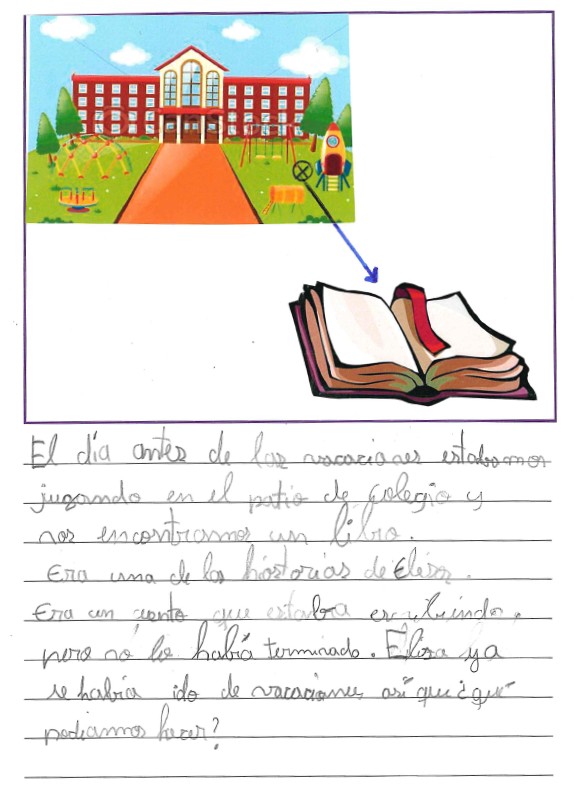 El día antes de las vacaciones estabamos
jugando en el patio de colegio y
nos encontramos un libro.
Era una de las historias de Elisa.
Era un cuento que estaba escribiendo,
pero no lo había terminado. Elisa ya
se había ido de vacaciones así que ¿qué
podiamos hacer?